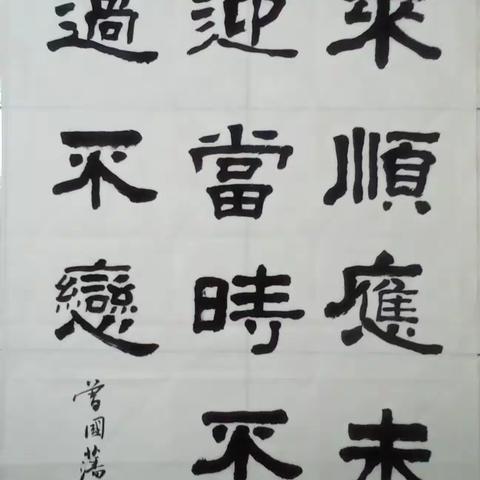 來順應未
迎當時不
過不戀
曾國藩